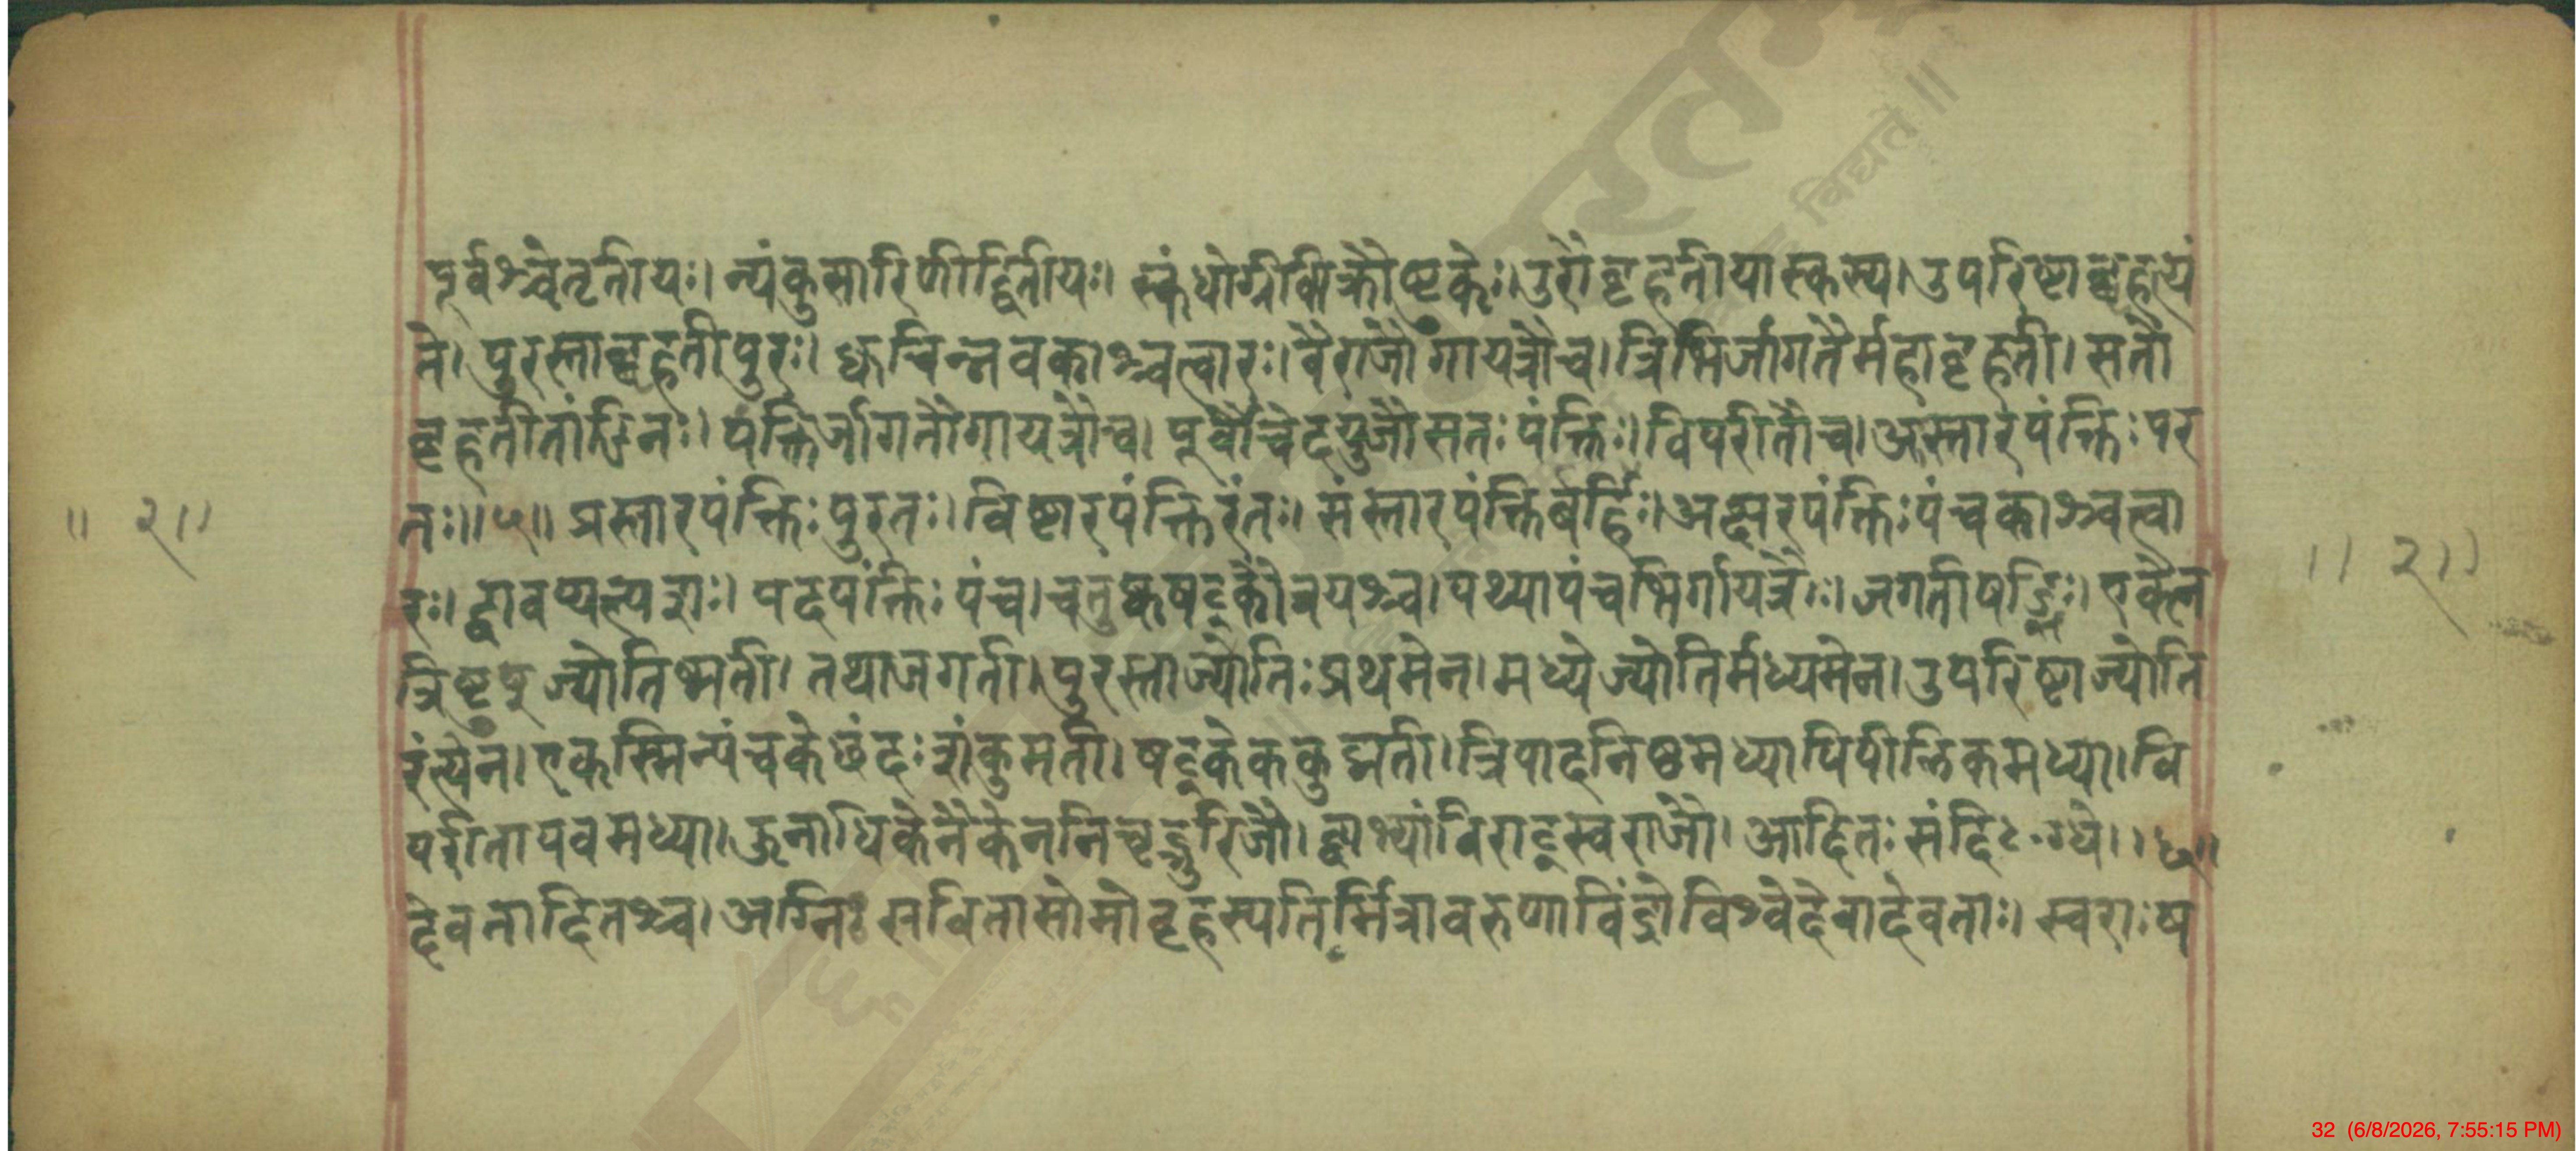 पूर्वश्चेतृतीयः। न्यंकुसारिणीद्वितीयः। स्कंधोग्रीवीक्रौष्टुकेः। उरोबृहतीयास्कस्य। उपरिष्टाद्बृहत्यं
ते। पुरस्ताद्बृहतीपुरः। क्वचिन्नवकाश्चत्वारः। वैराजौ गायत्रौच। त्रिभिर्जागतैर्महाबृहती। सतो
बृहतीतांडिनः। पंक्तिर्जागतौगायत्रौच। पूर्वौचेदयुजौसतः पंक्तिः। विपरीतौच। आस्तारपंक्तिः पर
तः॥५॥ प्रस्तारपंक्तिः पुरतः। विष्टारपंक्तिरंतः। संस्तारपंक्तिर्बहिः। अक्षरपंक्तिः पंचकाश्चत्वा
रः। द्वावप्यल्पशः। पदपंक्तिः पंच। चतुष्कषट्कौत्रयश्च। पथ्यापंचभिर्गायत्रैः। जगतीषड्भिः। एकेन
त्रिष्टुप् ज्योतिष्मती। तथाजगती। पुरस्ताज्योतिः प्रथमेन। मध्येज्योतिर्मध्यमेन। उपरिष्टाज्योति
रंत्येन। एकस्मिन्पंचकेछंदः शंकुमती। षट्केककुद्मती। त्रिपादनिष्ठमध्यापिपीलिकमध्या। वि
परीतायवमध्या। ऊनाधिकेनैकेननिचृद्भुरिजौ। द्वाभ्यांविराट्स्वराजौ। आदितः संदिग्धे। ।५॥
देवतादितश्च। अग्निः सवितासोमोबृहस्पतिर्मित्रावरुणाविंद्रोविश्वेदेवादेवताः। स्वराः ष
॥ २॥
॥ २॥
32 (6/8/2026, 7:55:15 PM)